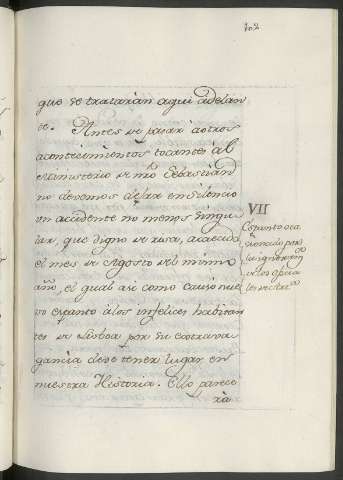 102
que se trataràn aqui adelan
te. Antes de pasar a otros
acontecimientos tocantes al
Ministerio de nro Sebastian
no devemos dejar en silencio
un accidente no menos singu
lar, que digno de risa, acaecido
el mes de Agosto del mismo
año, el qual asi como causò nue
vo espanto à los infelices habitan
tes de Lisboa por su extrava
gancia deve tener lugar en
nuestra Historia. Ello parece
rà
VII
Espanto oca
sionado por
la ignoran
de los oficia
les